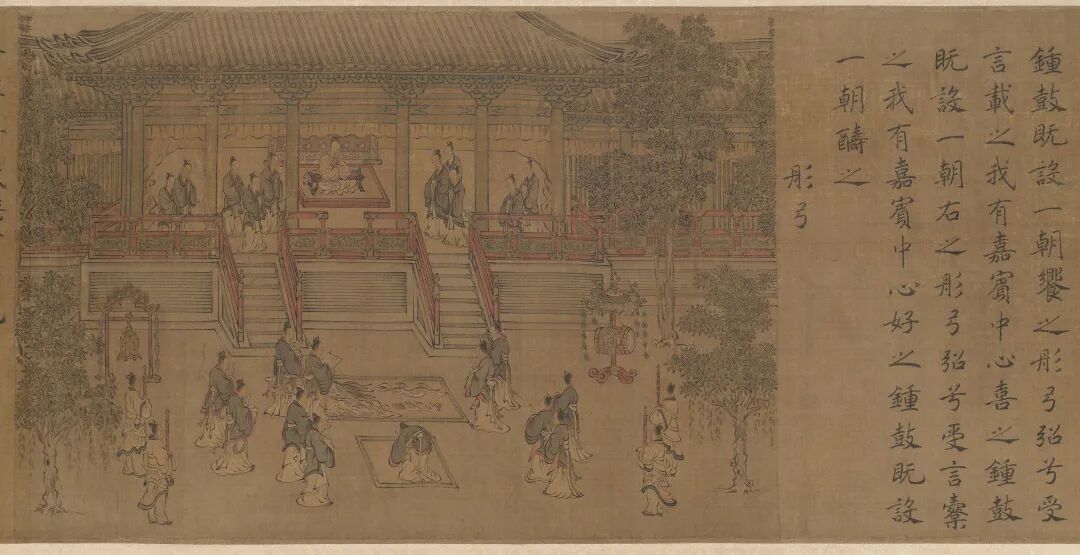 鍾鼓既設一朝饗之彤弓弨兮受
言載之我有嘉賓中心喜之鍾鼓
既設一朝右之彤弓弨兮受言櫜
之我有嘉賓中心好之鍾鼓既設
一朝醻之
彤弓